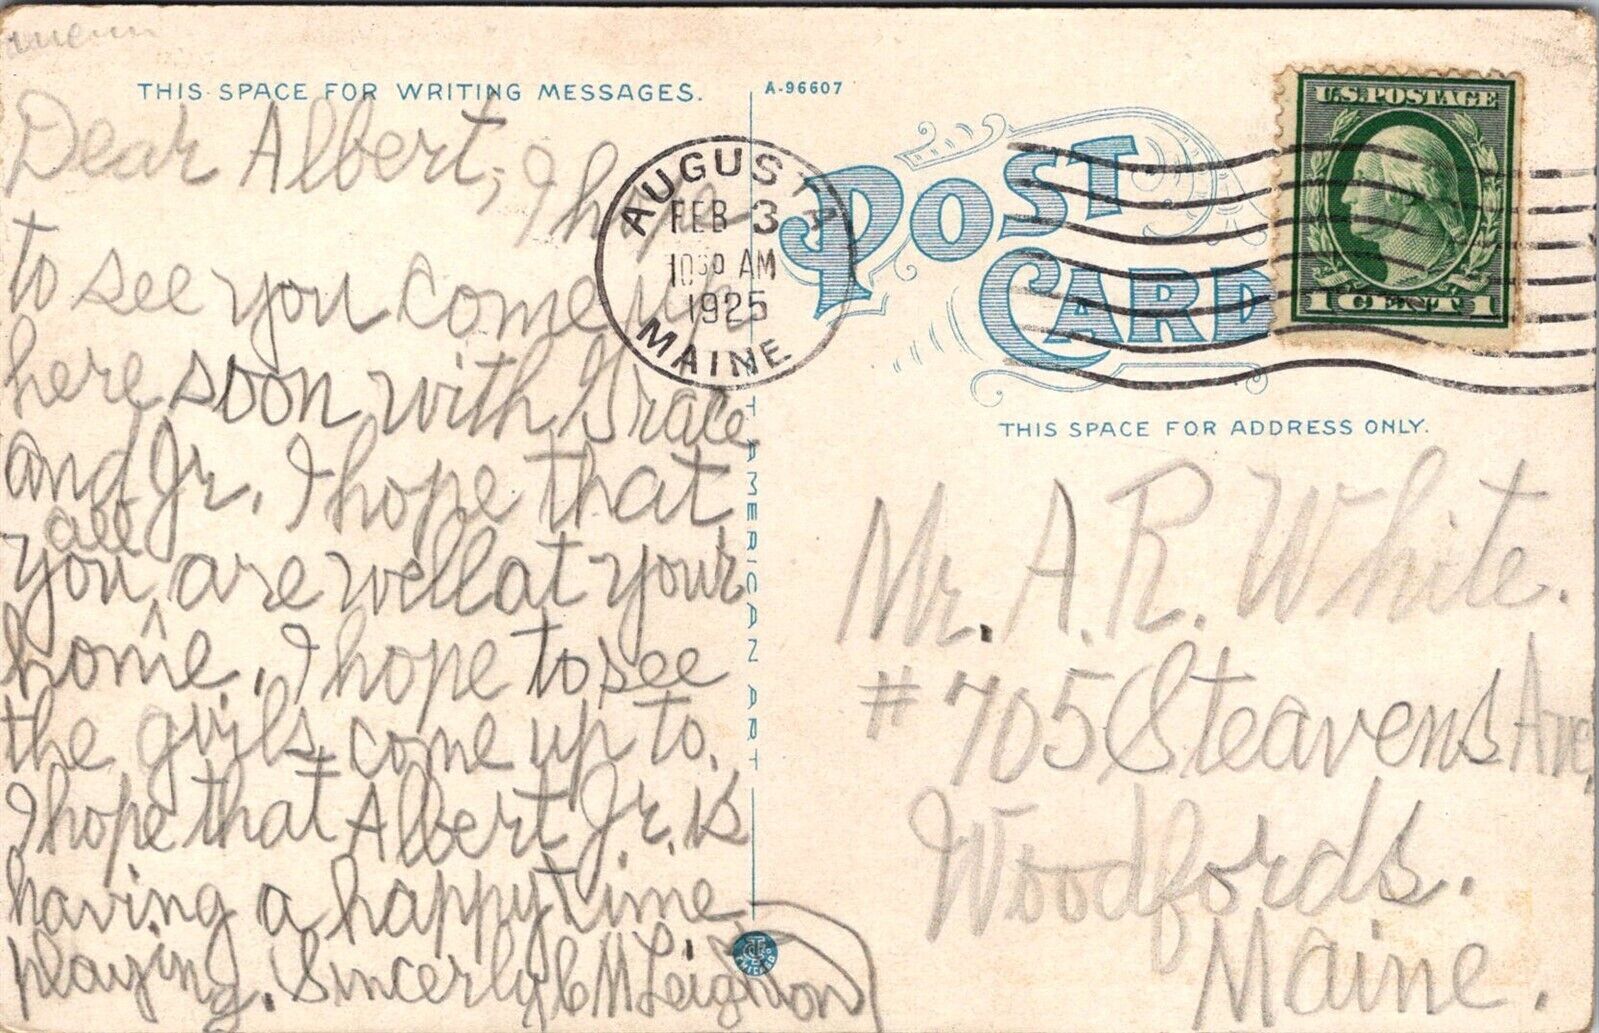 THIS SPACE FOR WRITING MESSAGES.
Dear Albert, I hope
to see you come up
here soon with Grace
and Jr. I hope that
all
you are well at your
home. I hope to see
the guils come up to.
I hope that Albert Jr. is
having a happy time
playing. Sincerly C M Leighton
A-96607
POST CARD
AUGUSTA
FEB 3
1030 AM
1925
MAINE
U.S. POSTAGE
1 CENT 1
THIS SPACE FOR ADDRESS ONLY.
Mr. A. R. White.
# 705 Steavens Ave,
Woodfords.
Maine.
T AMERICAN ART
CHICAGO